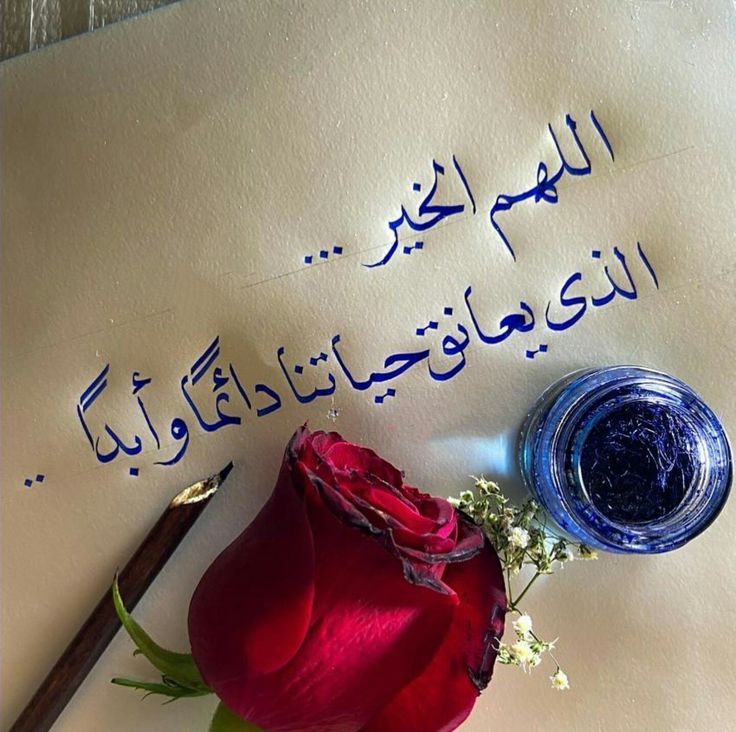 اللهم الخير ...
الذى يعانق حياتنا دائمًا وأبدًا ..